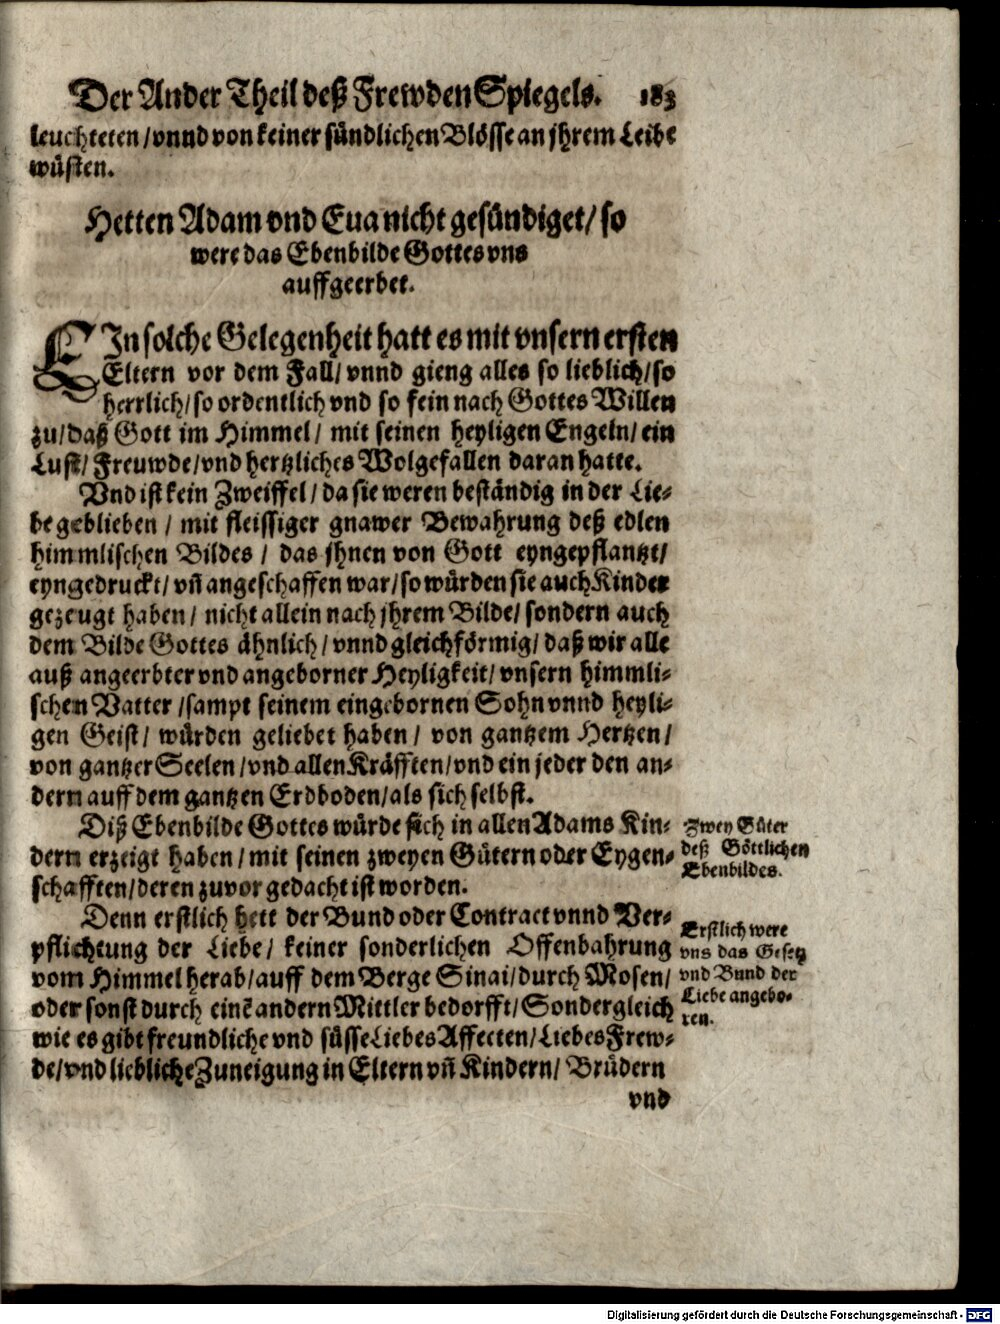 Der Ander Theil deß Frewden Spiegels. 183
leuchteten/vnnd von keiner sündlichen Blösse an jhrem Leibe
wüsten.
Hetten Adam vnd Eua nicht gesündiget/ so
were das Ebenbilde Gottes vns
auffgeerbet.
EIn solche Gelegenheit hatt es mit vnsern ersten
Eltern vor dem Fall/ vnnd gieng alles so lieblich/so
herrlich/so ordentlich vnd so fein nach Gottes Willen
zu/daß Gott im Himmel/ mit seinen heyligen Engeln/ ein
Lust/ Freuwde/vnd hertzliches Wolgefallen daran hatte.
Vnd ist kein Zweiffel/ da sie weren beständig in der Lie-
be geblieben/ mit fleissiger gnawer Bewahrung deß edlen
himmlischen Bildes/ das jhnen von Gott eyngepflantzt/
eyngedruckt/ vñ angeschaffen war/so würden sie auch Kinder
gezeugt haben/ nicht allein nach jhrem Bilde/ sondern auch
dem Bilde Gottes ähnlich/ vnnd gleichförmig/ daß wir alle
auß angeerbter vnd angeborner Heyligkeit/ vnsern himmli-
schen Vatter/sampt seinem eingebornen Sohn vnnd heyli-
gen Geist/ würden geliebet haben/ von gantzem Hertzen/
von gantzer Seelen/vnd allen Kräfften/vnd ein jeder den an-
dern auff dem gantzen Erdboden/als sich selbst.
Diß Ebenbilde Gottes würde sich in allen Adams Kin-
dern erzeigt haben/mit seinen zweyen Gütern oder Eygen-
schafften/deren zuvor gedacht ist worden.
Zwey Güter
deß Göttlichen
Ebenbildes.
Denn erstlich hett der Bund oder Contract vnnd Ver-
pflichtung der Liebe/ keiner sonderlichen Offenbahrung
vom Himmel herab/auff dem Berge Sinai/durch Mosen/
oder sonst durch einē andern Mittler bedorfft/Sonder gleich
wie es gibt freundliche vnd süsse Liebes Affecten/Liebes Frew-
de/vnd liebliche Zuneigung in Eltern vñ Kindern/ Brüdern
vnd
Erstlich were
vns das Gesetz
vnd Bund der
Liebe angebo-
ren.
Digitalisierung gefördert durch die Deutsche Forschungsgemeinschaft - DFG